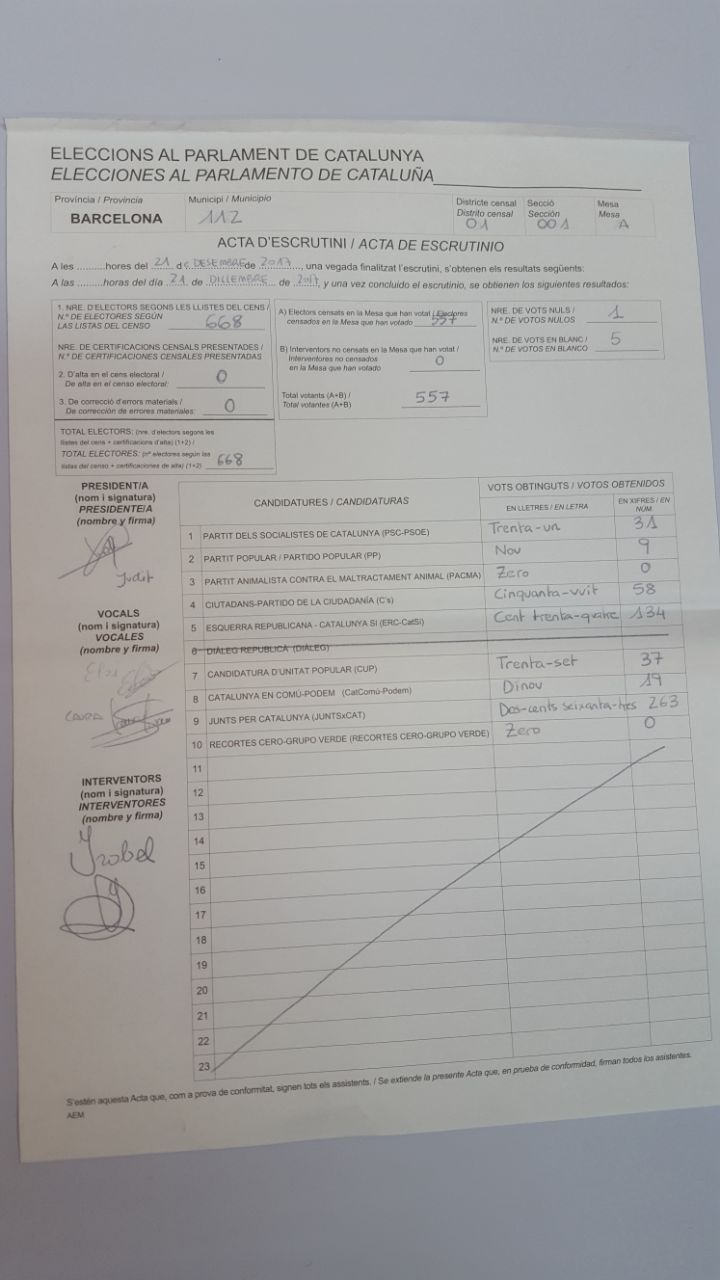 ELECCIONS AL PARLAMENT DE CATALUNYA
ELECCIONES AL PARLAMENTO DE CATALUÑA
Província / Provincia
BARCELONA
Municipi / Municipio
112
Districte censal
Distrito censal
01
Secció
Sección
001
Mesa
Mesa
A
ACTA D'ESCRUTINI / ACTA DE ESCRUTINIO
A les ..........hores del 21 de DESEMBRE de 2017, una vegada finalitzat l'escrutini, s'obtenen els resultats següents:
A las ..........horas del día 21 de DICIEMBRE de 2017 y una vez concluido el escrutinio, se obtienen los siguientes resultados:
1. NRE. D'ELECTORS SEGONS LES LLISTES DEL CENS /
N.º DE ELECTORES SEGÚN
LAS LISTAS DEL CENSO 668
NRE. DE CERTIFICACIONS CENSALS PRESENTADES /
N.º DE CERTIFICACIONES CENSALES PRESENTADAS
2. D'alta en el cens electoral /
De alta en el censo electoral: 0
3. De correcció d'errors materials /
De corrección de errores materiales: 0
TOTAL ELECTORS: (nre. d'electors segons les
llistes del cens + certificacions d'alta) (1+2) /
TOTAL ELECTORES: (nº electores según las
listas del censo + certificaciones de alta) (1+2) 668
A) Electors censats en la Mesa que han votat / Electores
censados en la Mesa que han votado 557
B) Interventors no censats en la Mesa que han votat /
Interventores no censados
en la Mesa que han votado 0
Total votants (A+B) /
Total votantes (A+B) 557
NRE. DE VOTS NULS /
N.º DE VOTOS NULOS 1
NRE. DE VOTS EN BLANC /
N.º DE VOTOS EN BLANCO 5
PRESIDENT/A
(nom i signatura)
PRESIDENTE/A
(nombre y firma)
Judit
VOCALS
(nom i signatura)
VOCALES
(nombre y firma)
INTERVENTORS
(nom i signatura)
INTERVENTORES
(nombre y firma)
CANDIDATURES / CANDIDATURAS
VOTS OBTINGUTS / VOTOS OBTENIDOS
EN LLETRES / EN LETRA
EN XIFRES / EN NÚM.
1 PARTIT DELS SOCIALISTES DE CATALUNYA (PSC-PSOE) Trenta-un 31
2 PARTIT POPULAR / PARTIDO POPULAR (PP) Nou 9
3 PARTIT ANIMALISTA CONTRA EL MALTRACTAMENT ANIMAL (PACMA) Zero 0
4 CIUTADANS-PARTIDO DE LA CIUDADANÍA (C's) Cinquanta-vuit 58
5 ESQUERRA REPUBLICANA - CATALUNYA SÍ (ERC-CatSí) Cent trenta-quatre 134
6 DIÀLEG REPUBLICÀ (DIÀLEG)
7 CANDIDATURA D'UNITAT POPULAR (CUP) Trenta-set 37
8 CATALUNYA EN COMÚ-PODEM (CatComú-Podem) Dinou 19
9 JUNTS PER CATALUNYA (JUNTSxCAT) Dos-cents seixanta-tres 263
10 RECORTES CERO-GRUPO VERDE (RECORTES CERO-GRUPO VERDE) Zero 0
11
12
13
14
15
16
17
18
19
20
21
22
23
S'estén aquesta Acta que, com a prova de conformitat, signen tots els assistents. / Se extiende la presente Acta que, en prueba de conformidad, firman todos los asistentes.
AEM